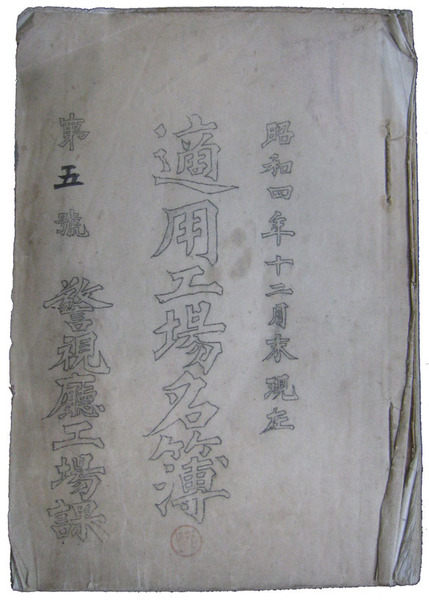 昭和四年十二月末現在
適用工場名簿
第五號 警視廳工場課